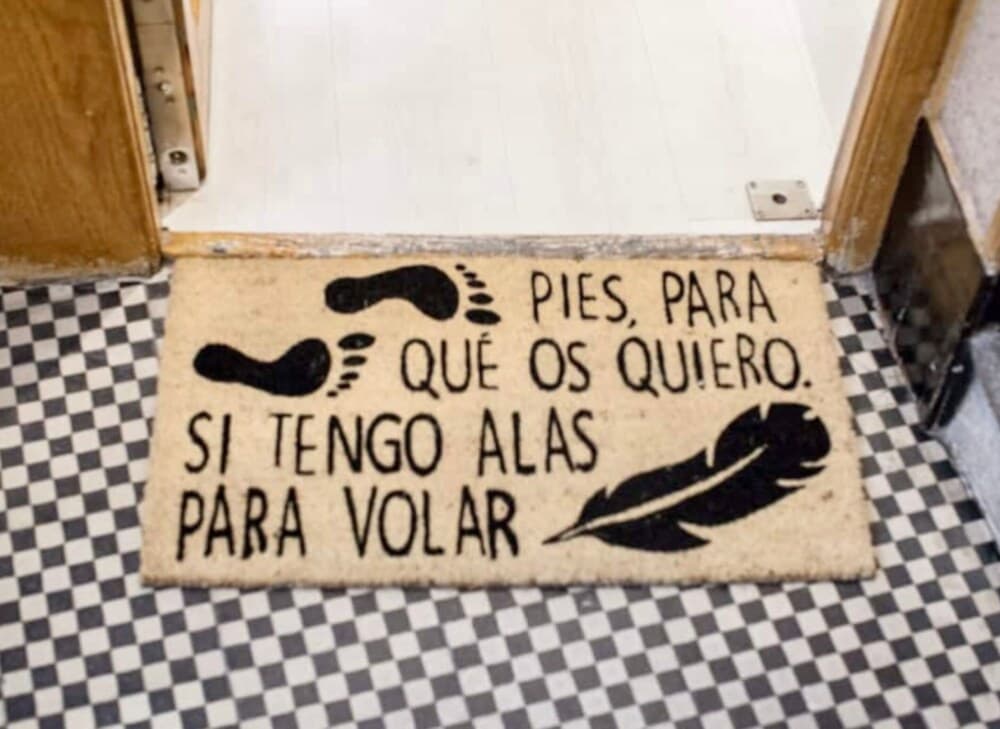 PIES, PARA
QUÉ OS QUIERO.
SI TENGO ALAS
PARA VOLAR